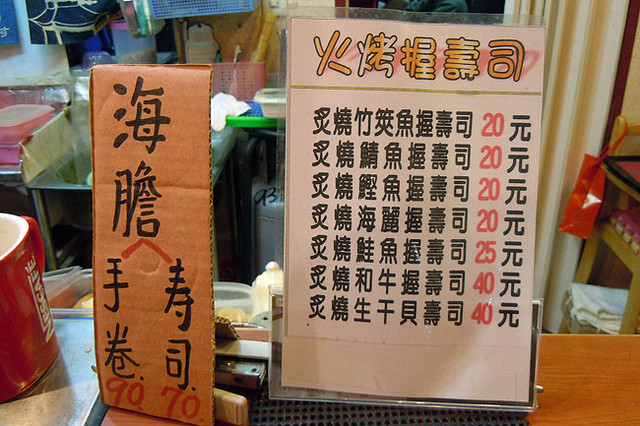 海膽
手卷 90.
寿司. 70
火烤握壽司
炙燒竹筴魚握壽司 20元
炙燒鯖魚握壽司 20元
炙燒鰹魚握壽司 20元
炙燒海麗握壽司 20元
炙燒鮭魚握壽司 25元
炙燒和牛握壽司 40元
炙燒生干貝壽司 40元
NESCAFÉ